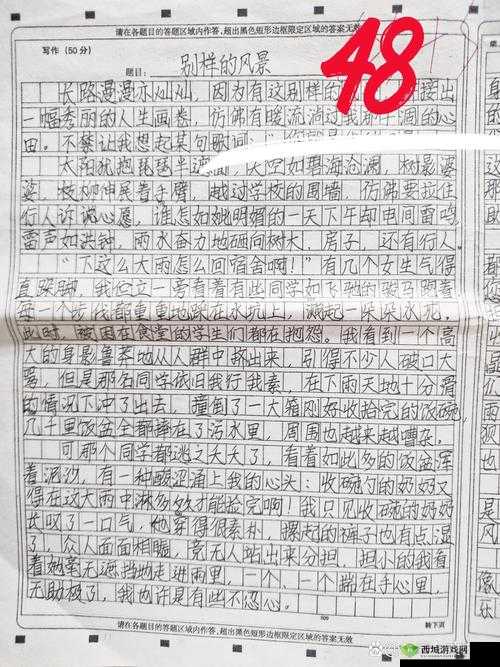 请在各题目的答题区域内作答，超出黑色矩形边框限定区域的答案无效
48
写作（50分）
题目：别样的风景
长路漫漫亦灿灿，因为有这别样的 接出
一幅秀丽的人生画卷，仿佛有暖流淌过我 干涸的心
田。不禁让我想起某句歌词：
太阳犹抱琵琶半遮面，天空如碧海沧澜，树景婆
娑，枝柳伸展着手臂，越过学校的围墙，仿佛要拉住
行人许说心愿，谁怎如此明媚的一天下午却电闪雷鸣
雷声如洪钟，雨水奋力地砸向树大，房子，还有行人
“下这么大雨怎么回宿舍啊！”有几个女生气得
直跺脚，我伫立一旁看着有些同学如飞驰的骏马踢着
每一个步伐都重重地踩在水坑上，溅起一朵朵水花，
此时，被困在食堂的学生们都在抱怨。我看到一个高
大的身影鲁莽地从人群中挤出来，引得不少人破口大
骂，但是那名同学依旧我行我素，在下雨天地十分滑
的情况下冲了出去，撞倒了一大箱刚好收拾完的饭碗，
几千里饭盆全都摔在了污水里，周围也越来越嘈杂。
可那个同学都逃之夭夭了，看着如此多的饭盆浑
着泥沙，有一种酸涩涌上我的心头：收碗勺的奶奶又
得在这大雨中淋多久才能捡完啊！我只见收碗的奶奶
长叹了一口气，她穿得很素朴，挪起的裤子也有点湿
了，众人面面相瞌，竟无人站出来分担，担小的我看
着她毫无遮挡地走进雨里，一个、一个踹在手心里，
无助极了，我也许是有些不忍心。
转下页
请在各题目的答题区域内作答，超出黑色矩形边框限定区域的答案无效
西城游戏网